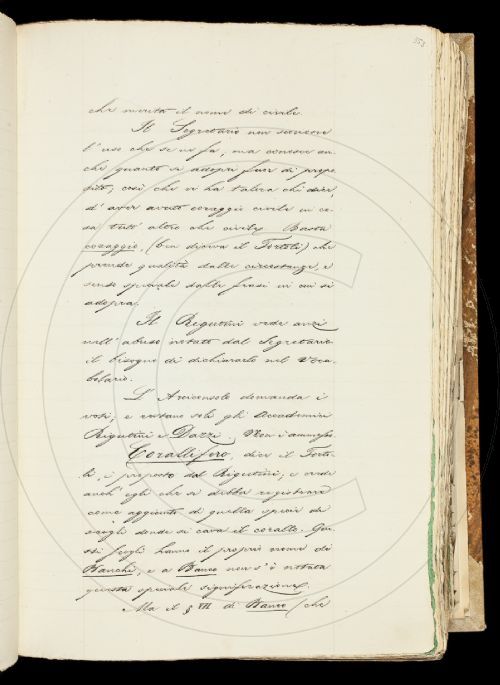 353
che merita il nome di civile.
Il Segretario non sconosce
l'uso che se ne fa, ma conosce an-
che quanto si adopra fuor di propo-
sito, così che vi ha talora chi dice,
d'aver avuto coraggio civile in co-
sa tutt'altro che civile. Basta
coraggio, (bia diceva il Tortoli) che
prende qualità dalle circostanze, e
senso speciale dalle frasi in cui si
adopra.
Il Rigutini vede anzi
nell'abuso notato dal Segretario
il bisogno di dichiararlo nel Voca-
bolario.
L'Arciconsolo domanda i
voti, e restano soli gli Accademici
Rigutini e Dazzi. Non è ammesso.
Corallifero, dice il Torto-
li, è proposto dal Rigutini, e crede
anch'egli che si debba registrare
come aggiunto di quella specie di
scogli donde si cava il corallo. Que-
sti scogli hanno il proprio nome di
Banchi, e a Banco non s'è notata
questa speciale significazione.
Ma il § VII di Banco (che